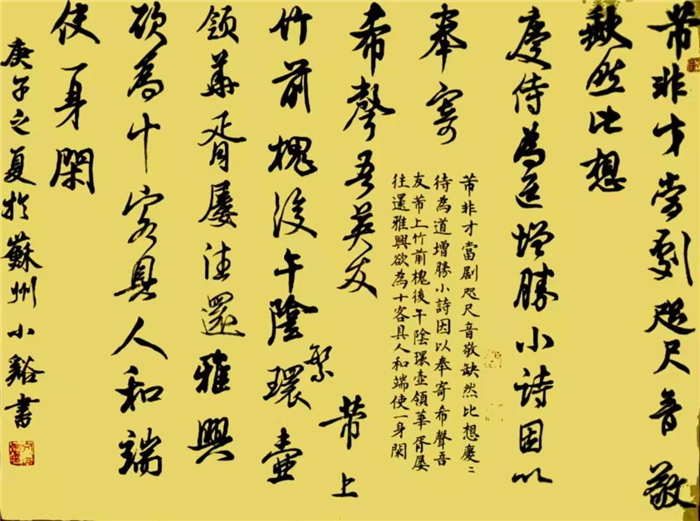 芾非才當劇咫尺音敬
缺然比想
慶侍為道增勝小詩因以
奉寄
希聲吾英友
芾上
竹前槐後午陰環壺
領華胥屢往還雅興
欲為十客具人和端
使一身閑
芾非才當劇咫尺音敬缺然比想慶二
待為道增勝小詩因以奉寄希聲吾
友芾上竹前槐後午陰環壺領華胥屢
往還雅興欲為十客具人和端使一身閑
庚子之夏於蘇州小谿書